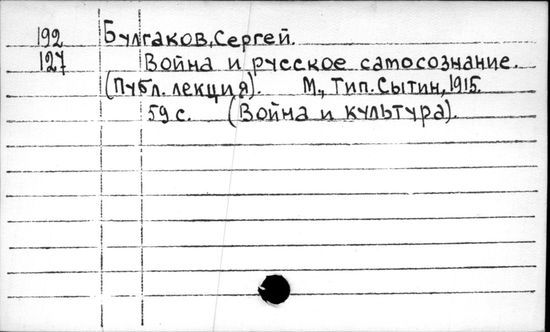 192 Булгаков, Сергей.
127 Война и русское самосознание.
(Публ. лекция). М., Тип. Сытин, 1915.
59 с. (Война и культура).